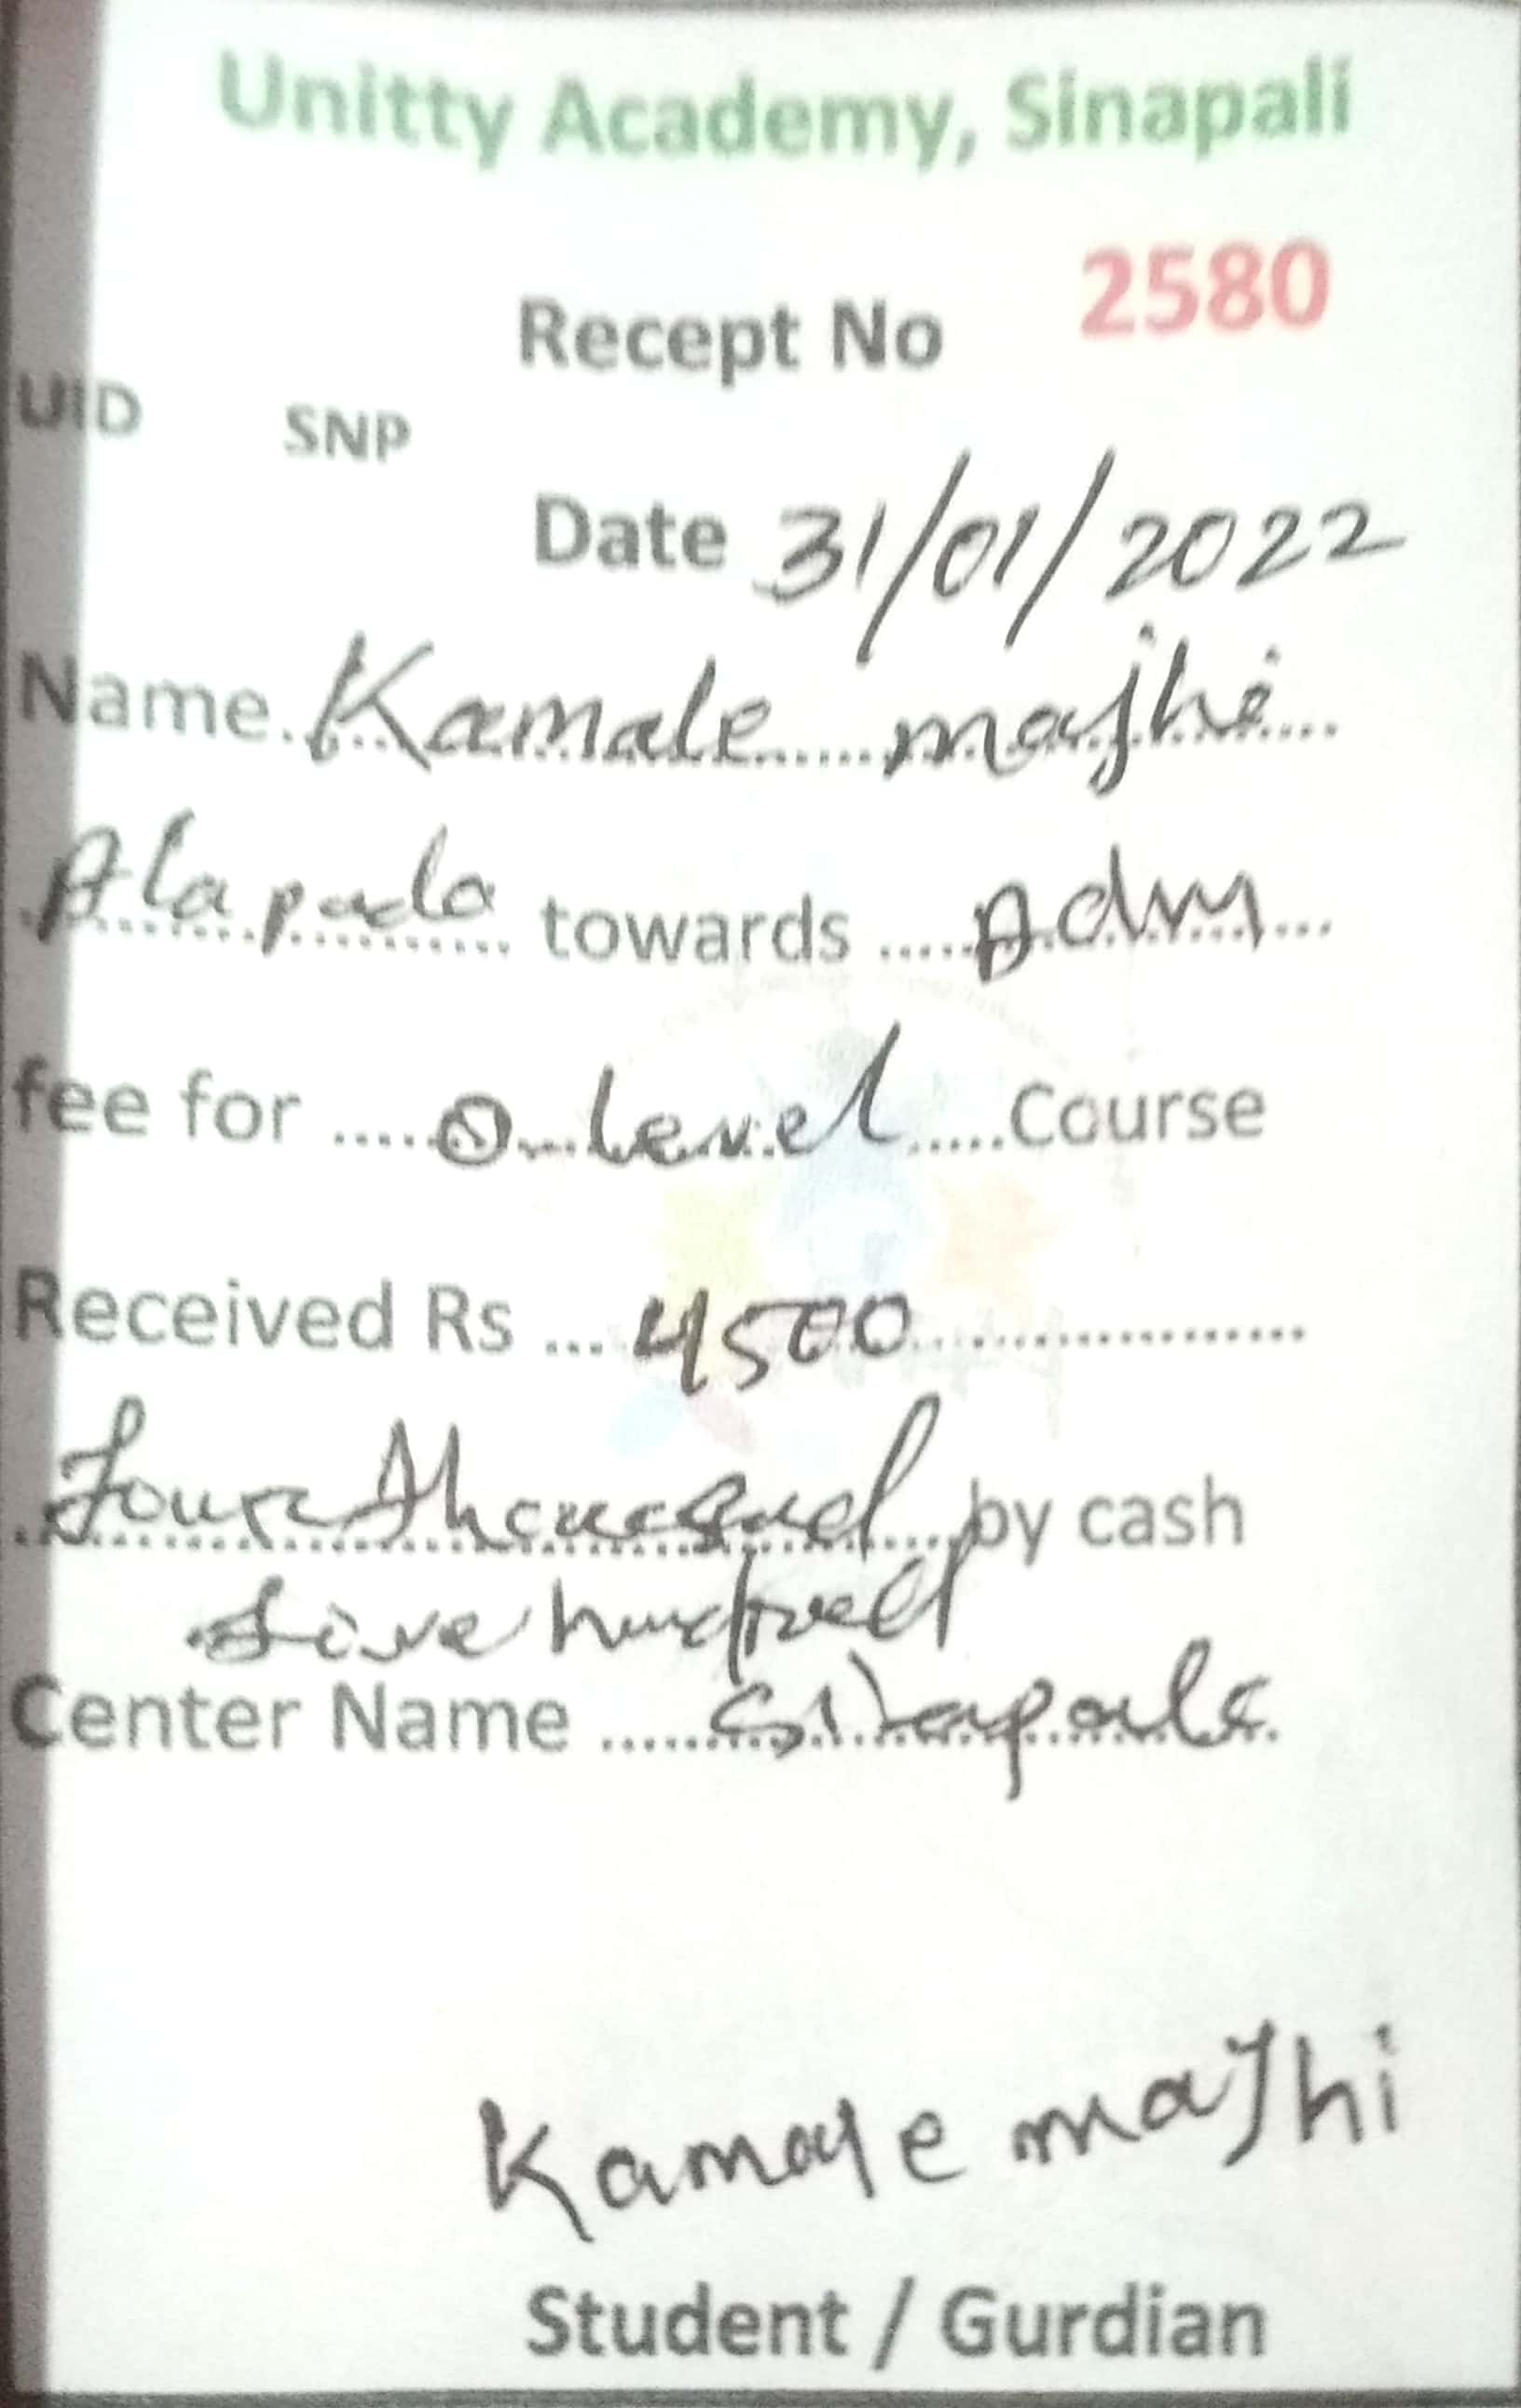 Unitty Academy, Sinapali
Recept No 2580
UID SNP
Date 31/01/2022
Name Kamale majhi
Alapada towards Adm
fee for O level Course
Received Rs 4500
Four thousand by cash
five hundred
Center Name Sinapali
Kamale majhi
Student / Gurdian